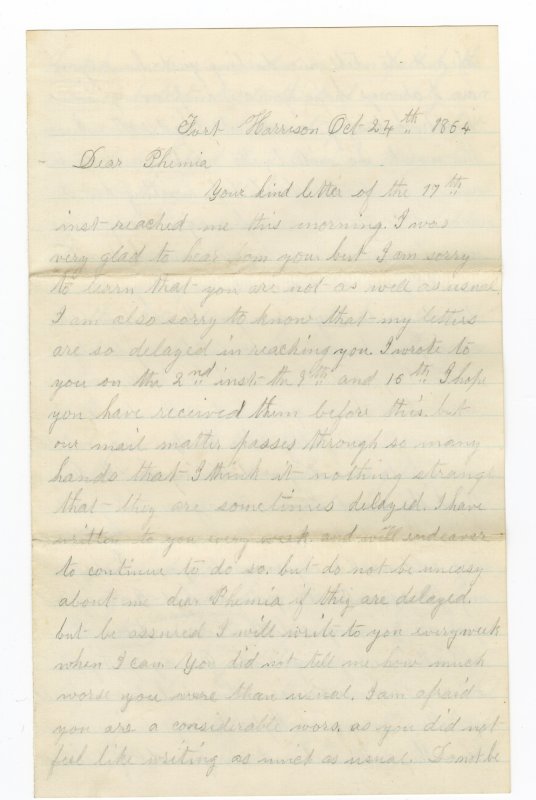 Fort Harrison Oct 24th 1864
Dear Phemia
Your kind letter of the 17th
inst reached me this morning. I was
very glad to hear from you but I am sorry
to learn that you are not as well as usual
I am also sorry to know that my letters
are so delayed in reaching you. I wrote to
you on the 2nd inst the 9th and 16th I hope
you have received them before this. but
our mail matter passes through so many
hands that I think it nothing strange
that they are sometimes delayed. I have
written to you every week. and will endeaver
to continue to do so. but do not be uneasy
about me dear Phemia if they are delayed.
but be assured I will write to you every week
when I can. You did not tell me how much
worse you were than usual. I am afraid
you are a considerable wors. as you did not
feel like writing as much as usual. Do not be